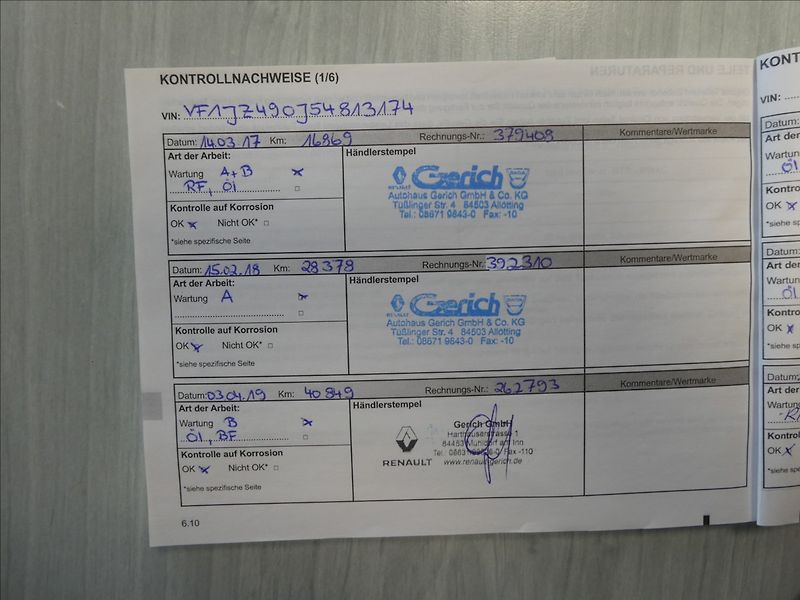 KONTROLLNACHWEISE (1/6)
VIN: VF1JZ490J54813174
Datum: 14.03.17 Km: 16869 Rechnungs-Nr.: 379409 Kommentare/Wertmarke
Art der Arbeit: Händlerstempel
Wartung A+B
RF, Öl
Kontrolle auf Korrosion
OK Nicht OK*
*siehe spezifische Seite
RENAULT Gerich DACIA
Autohaus Gerich GmbH & Co. KG
Tüßlinger Str. 4 84503 Altötting
Tel.: 08671 9843-0 Fax: -10
Datum: 15.02.18 Km: 28378 Rechnungs-Nr. 392310 Kommentare/Wertmarke
Art der Arbeit: Händlerstempel
Wartung A
Kontrolle auf Korrosion
OK Nicht OK*
*siehe spezifische Seite
RENAULT Gerich DACIA
Autohaus Gerich GmbH & Co. KG
Tüßlinger Str. 4 84503 Altötting
Tel.: 08671 9843-0 Fax: -10
Datum: 03.04.19 Km: 40849 Rechnungs-Nr.: 262793 Kommentare/Wertmarke
Art der Arbeit: Händlerstempel
Wartung B
Öl, BF
Kontrolle auf Korrosion
OK Nicht OK*
*siehe spezifische Seite
RENAULT
Gerich GmbH
84453 Mühldorf am Inn
www.renault-gerich.de
6.10
VIN:
Datum:
Art der
Öl
OK
*siehe
Datum:
Art der
Öl
OK
*siehe
Datum:
Art der
OK